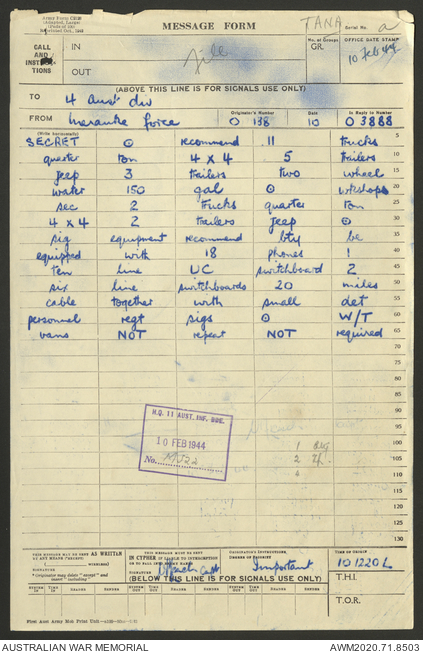 MESSAGE FORM
TANA
Serial No. a
CALL AND INSTRUCTIONS
IN
OUT
file
No. of Groups
GR.
OFFICE DATE STAMP
10 Feb 44
(ABOVE THIS LINE IS FOR SIGNALS USE ONLY)
TO 4 Aust div
FROM Merauke force
Originator's Number O 138
Date 10
In Reply to Number O 3888
(Write horizontally)
SECRET ⊙ recommend 11 trucks 5
quarter ton 4 x 4 5 trailers 10
jeep 3 trailers two wheel 15
water 150 gal ⊙ wkshops 20
sec 2 trucks quarter ton 25
4 x 4 2 trailers jeep ⊙ 30
sig equipment recommend bty be 35
equipped with 18 phones 1 40
ten line UC switchboard 2 45
six line switchboards 20 miles 50
cable together with small det 55
personnel regt sigs ⊙ W/T 60
vans NOT repeat NOT required 65
70
75
80
85
90
95
100
105
110
115
120
125
130
H.Q. 11 AUST. INF. BDE.
10 FEB 1944
No.
1
2
THIS MESSAGE MAY BE SENT AS WRITTEN BY ANY MEANS
SIGNATURE
THIS MESSAGE MUST BE SENT IN CYPHER IF LIABLE TO INTERCEPTION
SIGNATURE
ORIGINATOR'S INSTRUCTIONS, DEGREE OF PRIORITY
Important
TIME OF ORIGIN
101220L
(BELOW THIS LINE IS FOR SIGNALS USE ONLY)
T.H.I.
T.O.R.
SYSTEM IN TIME IN READER SENDER SYSTEM OUT TIME OUT READER SENDER SYSTEM OUT TIME OUT READER SENDER
First Aust Army Mob Print Unit
AUSTRALIAN WAR MEMORIAL
AWM2020.71.8503